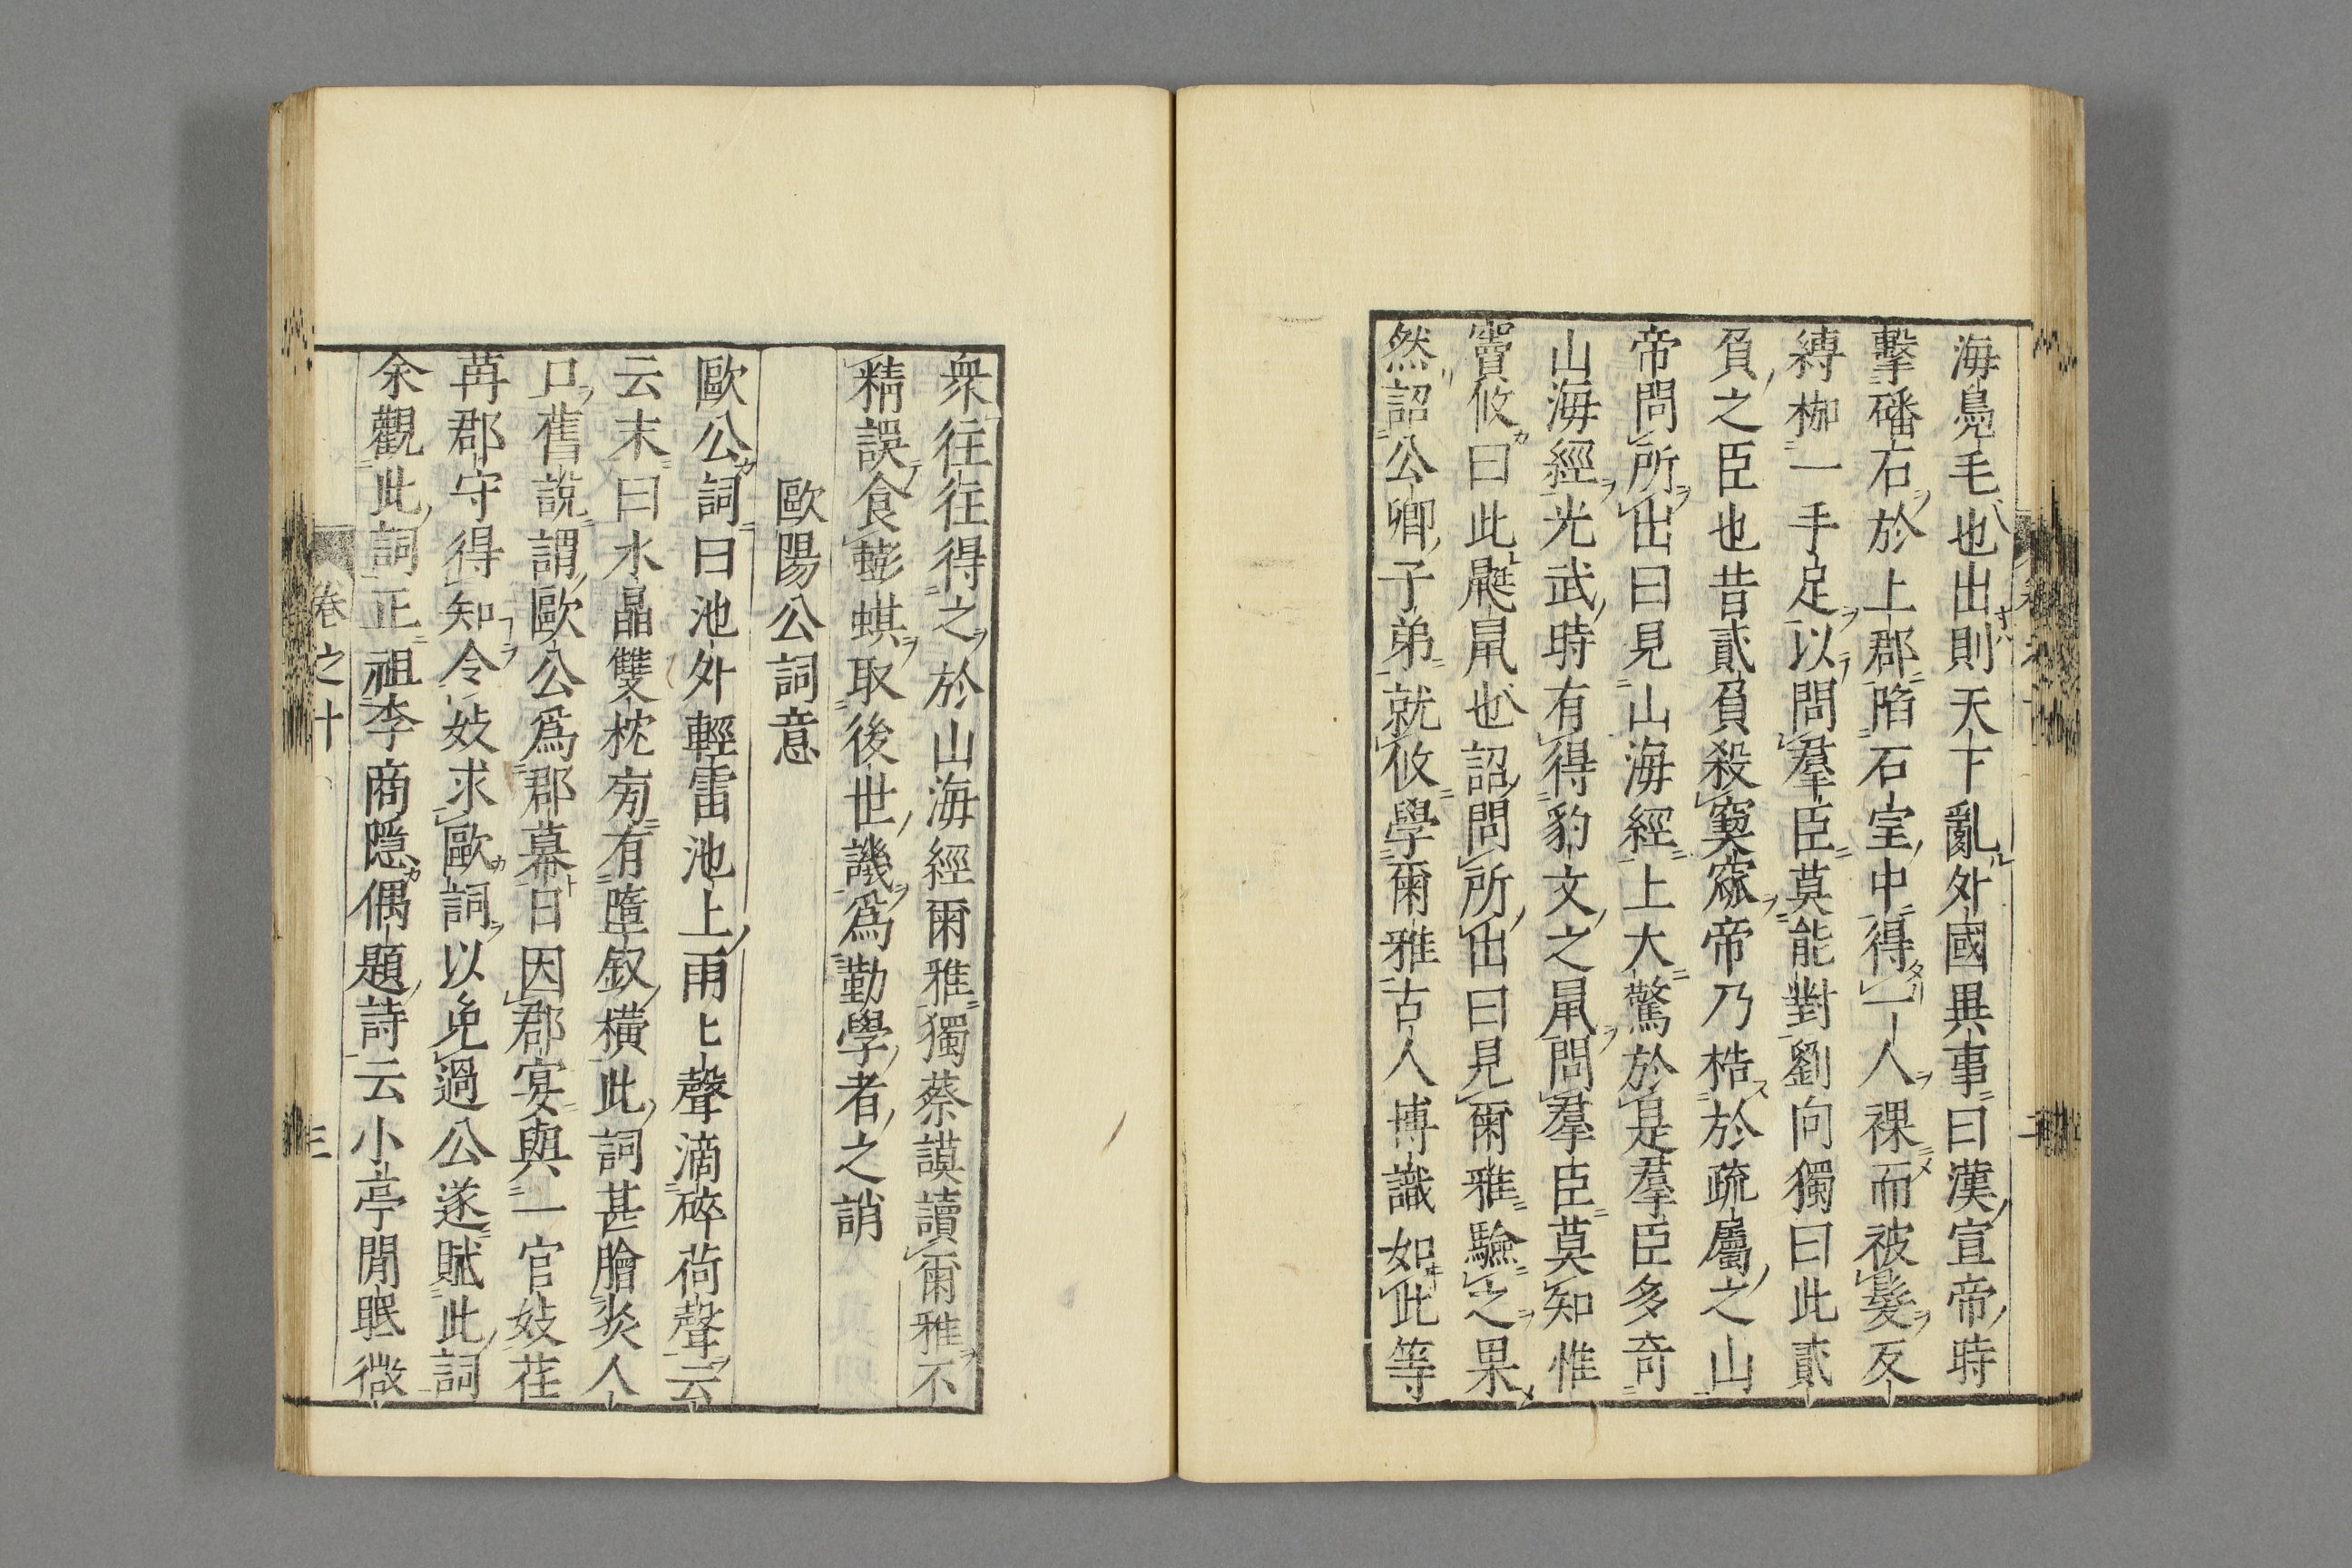 海鳧毛也出則天下亂外國異事曰漢宣帝時
擊磻石於上郡陷石室中得一人裸而被髮反
縛枷一手足以問羣臣莫能對劉向獨曰此貳
負之臣也昔貳負殺窫窳帝乃梏於疏屬之山
帝問所出曰見山海經上大驚於是羣臣多奇
山海經光武時有得豹文之鼠問羣臣莫知惟
竇攸曰此鼮鼠也詔問所出曰見爾雅驗之果
然詔公卿子弟就攸學爾雅古人博識如此等
衆往往得之於山海經爾雅獨蔡謨讀爾雅不
精誤食蟛蜞取後世譏爲勤學者之誚
歐陽公詞意
歐公詞曰池外輕雷池上雨ヒ聲滴碎荷聲云
云末曰水晶雙枕旁有墮釵橫此詞甚膾炙人
口舊說謂歐公爲郡幕日因郡宴與一官妓荏
苒郡守得知令妓求歐詞以免過公遂賦此詞
余觀此詞正祖李商隱偶題詩云小亭閒眠微
卷之十
三